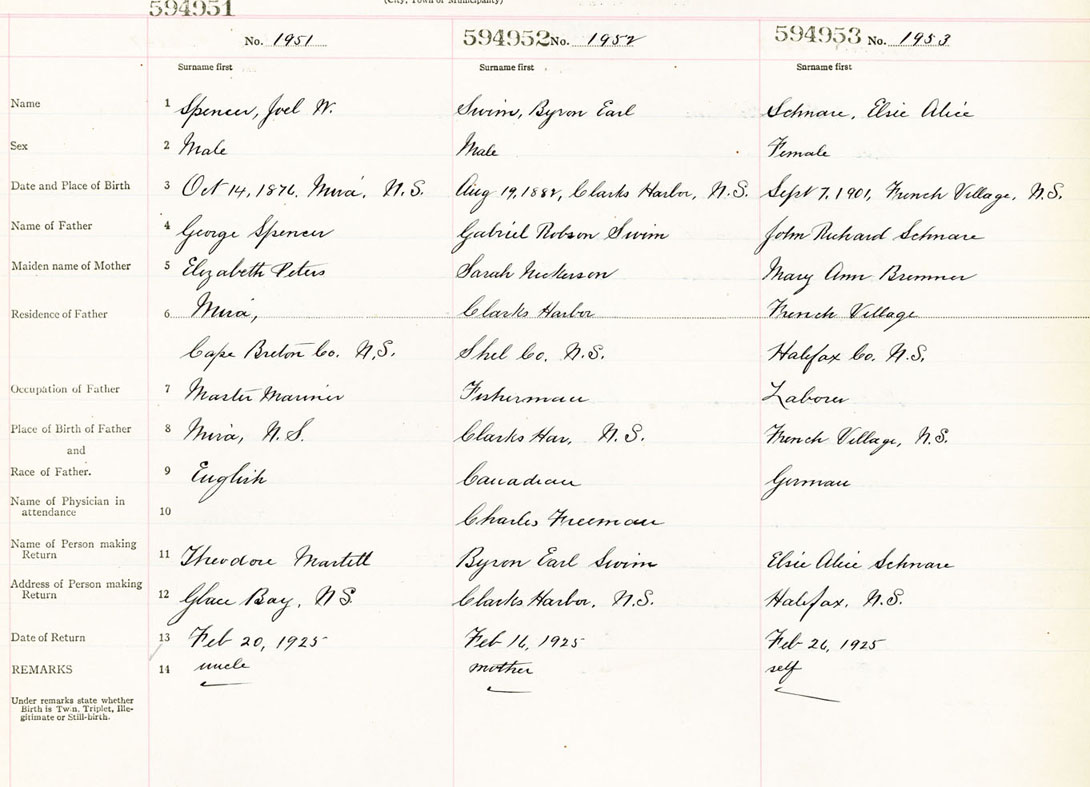 (City, Town or Municipality)
594951
No. 1951
594952 No. 1952
594953 No. 1953
Surname first Surname first Surname first
Name 1 Spencer, Joel W. Swim, Byron Earl Schnare, Elsie Alice
Sex 2 Male Male Female
Date and Place of Birth 3 Oct 14, 1876, Mira, N.S. Aug 19, 1882, Clarks Harbor, N.S. Sept 7, 1901, French Village, N.S.
Name of Father 4 George Spencer Gabriel Robson Swim John Richard Schnare
Maiden name of Mother 5 Elizabeth Peters Sarah Nickerson Mary Ann Bremner
Residence of Father 6 Mira, Clarks Harbor French Village
Cape Breton Co. N.S. Shel Co. N.S. Halifax Co. N.S.
Occupation of Father 7 Master Mariner Fisherman Laborer
Place of Birth of Father 8 Mira, N.S. Clarks Har, N.S. French Village, N.S.
and
Race of Father. 9 English Canadian German
Name of Physician in
attendance 10 Charles Freeman
Name of Person making
Return 11 Theodore Martell Byron Earl Swim Elsie Alice Schnare
Address of Person making
Return 12 Glace Bay, N.S. Clarks Harbor, N.S. Halifax, N.S.
Date of Return 13 Feb 20, 1925 Feb 16, 1925 Feb 26, 1925
REMARKS 14 uncle mother self
Under remarks state whether
Birth is Twin, Triplet, Ille-
gitimate or Still-birth.